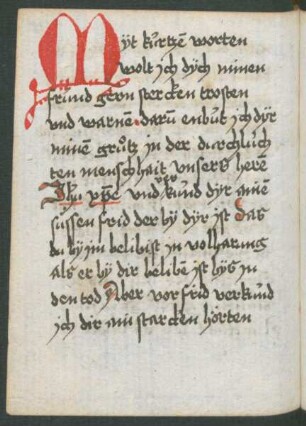 Myt kurtzē worten
wolt ich dych minen
frund gern stercken trosten
und warnē darū enbut ich dyr
minē gruͦtz in der durchluͤch
ten menschhait unsers herē
Jhu xp̄e und kund dyr ainē
suͤssen frid der by dyr ist Das
du by im belibist in volharung
als er by dir belibē ist byß in
den tod Aber vor frid verkund
ich dir ain starcken herten